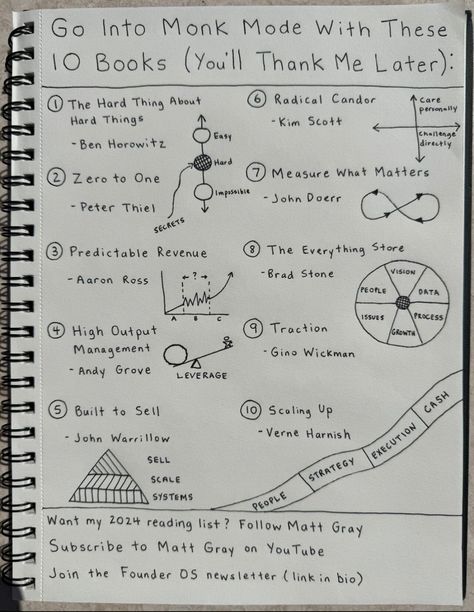 Go Into Monk Mode With These
10 Books (You'll Thank Me Later):
1 The Hard Thing About
Hard Things
- Ben Horowitz
Easy
Hard
Impossible
SECRETS
2 Zero to One
- Peter Thiel
3 Predictable Revenue
- Aaron Ross
?
A B C
4 High Output
Management
- Andy Grove
LEVERAGE
5 Built to Sell
- John Warrillow
SELL
SCALE
SYSTEMS
6 Radical Candor
- Kim Scott
Care
personally
Challenge
directly
7 Measure What Matters
- John Doerr
8 The Everything Store
- Brad Stone
VISION
DATA
PROCESS
GROWTH
ISSUES
PEOPLE
9 Traction
- Gino Wickman
10 Scaling Up
- Verne Harnish
PEOPLE
STRATEGY
EXECUTION
CASH
Want my 2024 reading list? Follow Matt Gray
Subscribe to Matt Gray on YouTube
Join the Founder OS newsletter (link in bio)